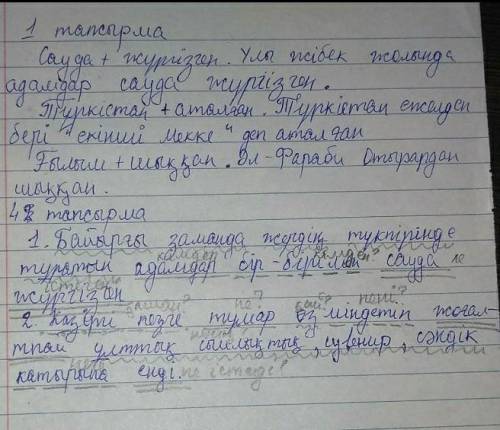 1 тапсырма
Сауда + жүргізген. Ұлы жібек жолында
адамдар сауда жүргізген.
Түркістан + аталған. Түркістан ежелден
бері "екінші Мекке" деп аталған
Ғылым + шыққан. Әл-Фараби Отырардан
шыққан.
4 тапсырма
1. Байырғы заманда жердің түкпірінде
тұратын адамдар бір-бірімен сауда не
жүргізген
қашан? не? қай? нені?
2. Қазіргі кезге тұмар өз міндетін жоғал-
тпай ұлттық сыйлықтық, сувенир, сәндік
қатырына енді. не істеді?